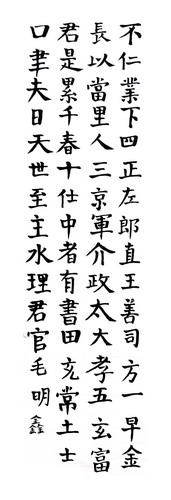 不仁業下四正左郎直王善司方一早金
長以當里人三京軍介政太大孝五玄富
君是累千春十仕中者有書田常土士
口聿夫日天世至主水理君官毛明鑫